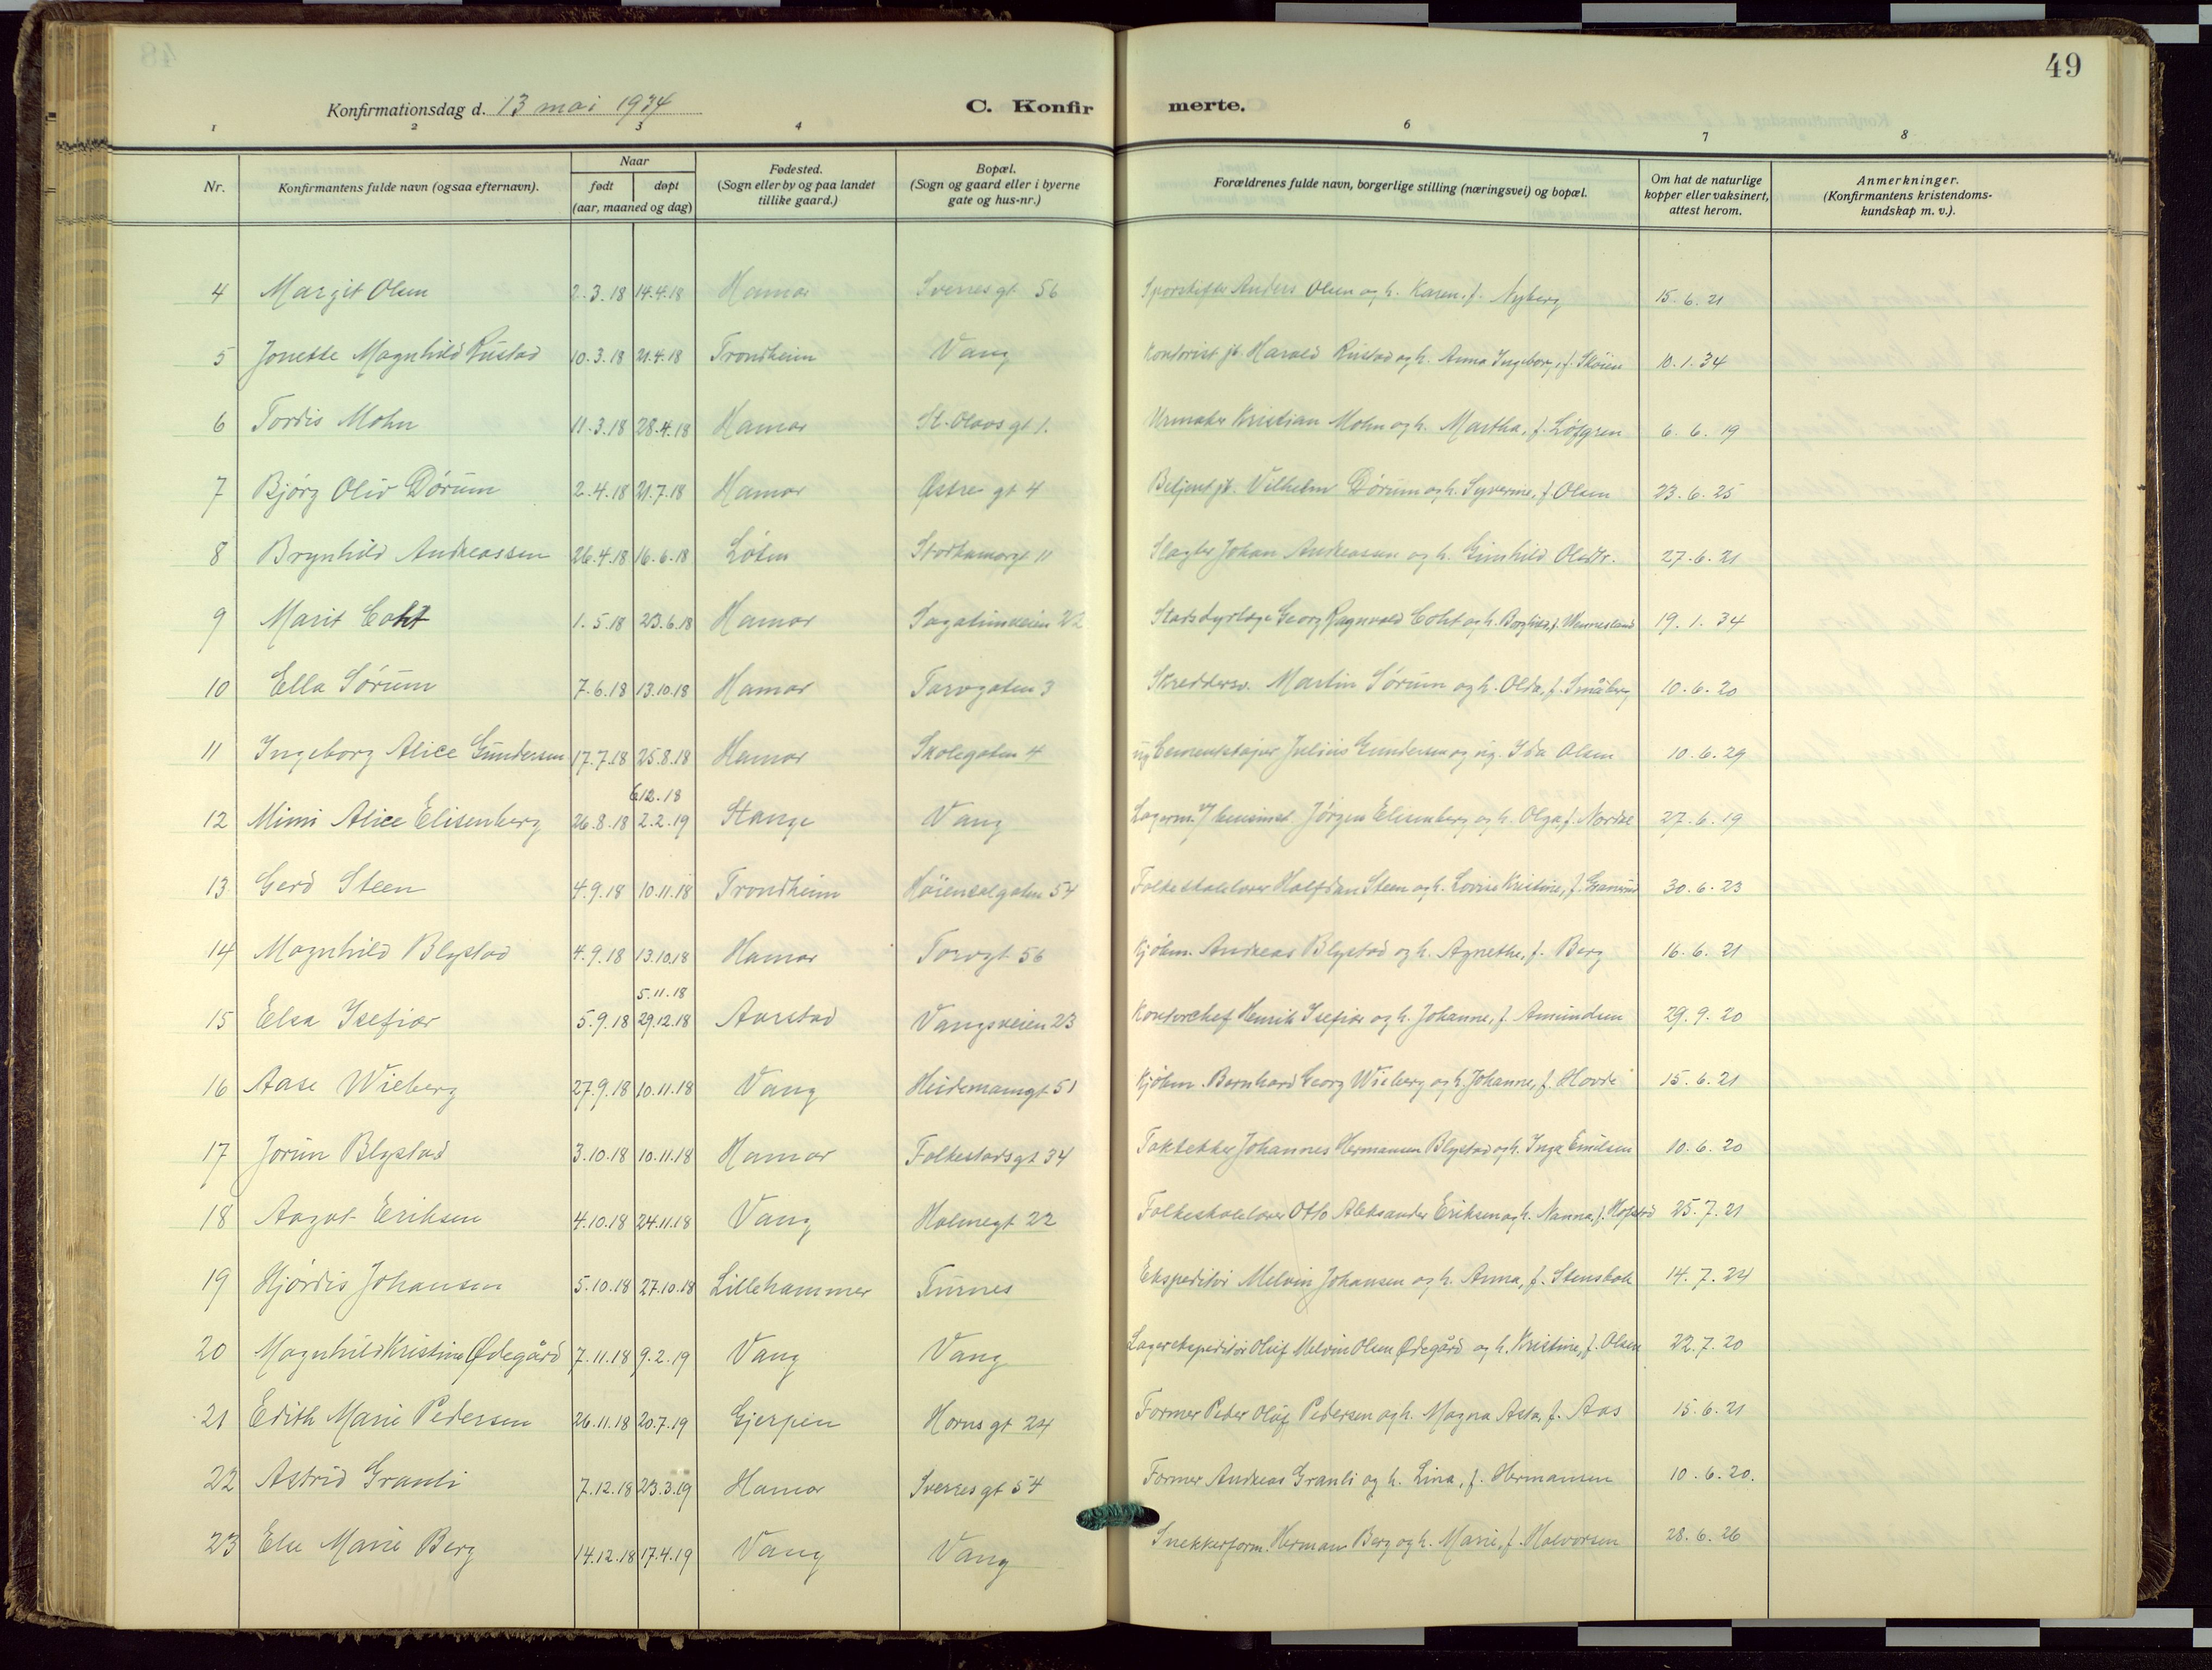 49
Konfirmationsdag d. 13 mai 1934
C. Konfirmerte.
1 2 3 4 6 7 8
Nr.
Konfirmantens fulde navn (ogsaa efternavn).
Naar
født
døpt
(aar, maaned og dag)
Fødested.
(Sogn eller by og paa landet
tillike gaard.)
Bopæl.
(Sogn og gaard eller i byerne
gate og hus-nr.)
Forældrenes fulde navn, borgerlige stilling (næringsvei) og bopæl.
Om hat de naturlige
kopper eller vaksinert,
attest herom.
Anmerkninger.
(Konfirmantens kristendoms-
kundskap m. v.).
4 Margit Olsen 2.3.18 14.4.18 Hamar Sverresgt 56 Sporskifter Anders Olsen og h. Karen, f. Nyberg 15.6.21
5 Jonette Magnhild Rustad 10.3.18 21.4.18 Trondheim Vang Kontorist jb. Harald Rustad og h. Anna Ingeborg, f. Skøien 10.1.34
6 Tordis Mohn 11.3.18 28.4.18 Hamar St. Olavs gt 1. Urmaker Kristian Mohn og h. Martha, f. Løfgren 6.6.19
7 Bjørg Oliv Dørum 2.4.18 21.7.18 Hamar Østre gt 4 Betjent jb. Vilhelm Dørum og h. Syverine, f. Olsen 23.6.25
8 Brynhild Andreassen 26.4.18 16.6.18 Løten Storhamargt 11 Slagter Johan Andreassen og h. Gunhild Olsdtr. 27.6.21
9 Marit Coht 1.5.18 23.6.18 Hamar Sagatunveien 22 Stadsdyrlæge Georg Ragnvald Coht og h. Borghild, f. Wennesland 19.1.34
10 Ella Sørum 7.6.18 13.10.18 Hamar Torvgaten 3 Skreddersv. Martin Sørum og h. Olda, f. Småberg 10.6.20
11 Ingeborg Alice Gundersen 17.7.18 25.8.18 Hamar Skolegaten 4 ug Cementstøper Julius Gundersen og ug. Ida Olsen 10.6.29
6 12.18
12 Mimi Alice Elisenberg 26.8.18 2.2.19 Stange Vang Lagerm. Jørgen Elisenberg og h. Olga, f. Nordre 27.6.19
13 Gerd Steen 4.9.18 10.11.18 Trondheim Høiensalgaten 54 Folkeskolelærer Halfdan Steen og h. Lovise Kristine, f. Granrud 30.6.23
14 Magnhild Blystad 4.9.18 13.10.18 Hamar Torvgt 56 Kjøbm. Andreas Blystad og h. Agnethe, f. Berg 16.6.21
5.11.18
15 Elsa Isefiær 5.9.18 29.12.18 Aarstad Vangsveien 23 Kontorchef Henrik Isefiær og h. Johanne, f. Amundsen 29.9.20
16 Aase Wieberg 27.9.18 10.11.18 Vang Heidemanngt 51 Kjøbm. Bernhard Georg Wieberg og h. Johanne, f. Hovde 15.6.21
17 Jorun Blystad 3.10.18 10.11.18 Hamar Folkestadsgt 34 Taktekker Johannes Hermansen Blystad og h. Inga Emilsen 10.6.20
18 Aagot Eriksen 4.10.18 24.11.18 Vang Holmegt 22 Folkeskolelærer Otto Aleksander Eriksen og h. Nanna, f. Hofstad 25.7.21
19 Hjørdis Johansen 5.10.18 27.10.18 Lillehammer Furnes Ekspeditør Melvin Johansen og h. Anna, f. Stensbak 14.7.24
20 Magnhild Kristine Ødegård 7.11.18 9.2.19 Vang Vang Lagerekspeditør Oluf Melvin Olsen Ødegård og h. Kristine, f. Olsen 22.7.20
21 Edith Marie Pedersen 26.11.18 20.7.19 Gjerpen Horns gt 24 Former Peder Oluf Pedersen og h. Magna Asta, f. Aas 15.6.21
22 Astrid Granli 7.12.18 23.3.19 Hamar Sverres gt 54 Former Andreas Granli og h. Lina, f. Hermansen 10.6.20.
23 Else Marie Berg 14.12.18 17.4.19 Vang Vang Snekkerform. Herman Berg og h. Marie, f. Halvorsen 28.6.26